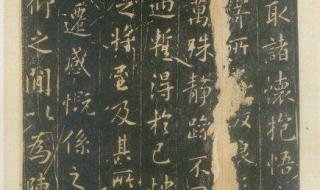 取諸懷抱悟
寄所
萬殊靜躁不
遇蹔得於己快
之將至及其所
遷感慨係之
仰之間以為陳